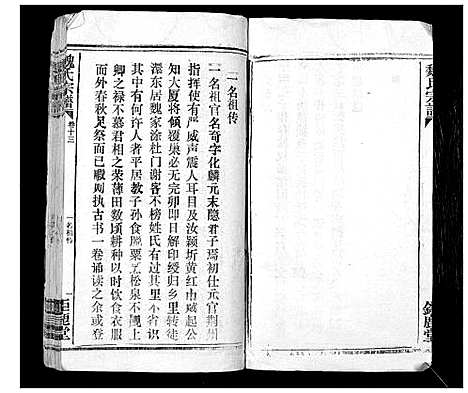 魏氏宗譜
卷十三
一名祖传
一名祖传
一名祖官名奇字化麟元末隐君子焉初仕元官荆州
指挥使有严威声震人耳目及颍圻黄红巾贼起
知大厦将倾覆巢必无完卵即日解印绶归乡里转徒
漂东居魏家涂杜门谢客不榜姓氏有过其里不省识
其中有何许人者平居教子孙食粟芝松泉不罔上
卿之禄不慕君相之荣薄田数顷耕种以时饮食衣服
外春秋足祭而已暇则执古书一卷诵读之或
钜鹿堂